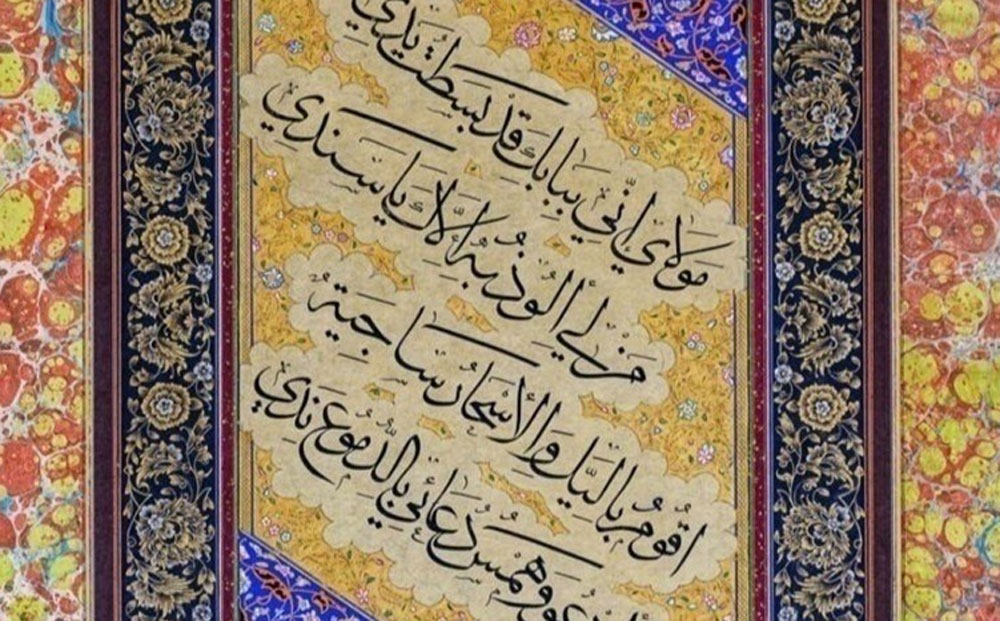 مَولَاي إنِّي بِبَابِكَ قَد بَسَطتُ يَدِي
مَن لِي ألُوذُ بِهِ إلَّاكَ يَا سَنَدِي
اقُومُ بِاللَّيلِ وَالأسحَارُ سَاجِيَةٌ
أدعُو وَهَمسُ دُعَائِي بِالدُّمُوعِ نَدِي